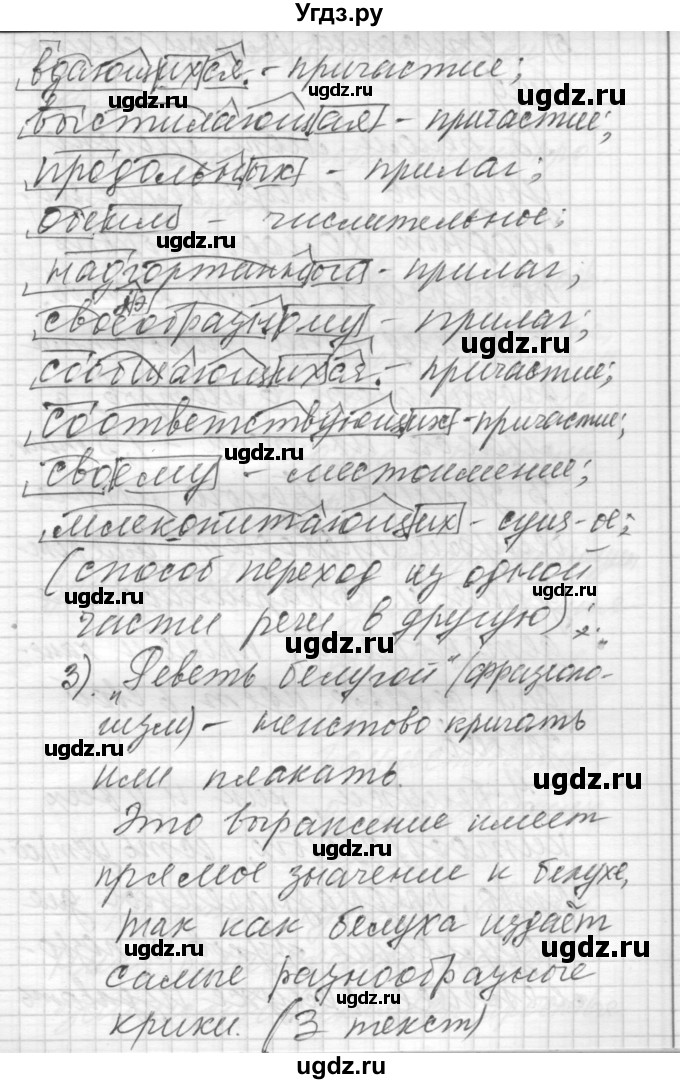 Угдз.ру
вдающихся. - причастие;
ugdz.ru ugdz.ru ugdz.ru
выстилающая - причастие;
продольных - прилаг;
ugdz.ru
обеими - числительное;
ugdz.ru
надгортанной - прилаг;
ugdz.ru
своеобразному - прилаг;
ugdz.ru
сообщающихся. - причастие;
соответствующих - причастие;
ugdz.ru
своему - местоимение;
млекопитающих - сущ-ое;
ugdz.ru
(способ переход из одной
ugdz.ru
части речи в другую);
ugdz.ru
3). "Реветь белугой" (фразеоло-
гизм) - неистово кричать
ugdz.ru
или плакать.
ugdz.ru
Это выражение имеет
ugdz.ru
прямое значение к белухе,
так как белуха издаёт
ugdz.ru ugdz.ru
самые разнообразные
ugdz.ru
крики. (3 текст)
ugdz.ru